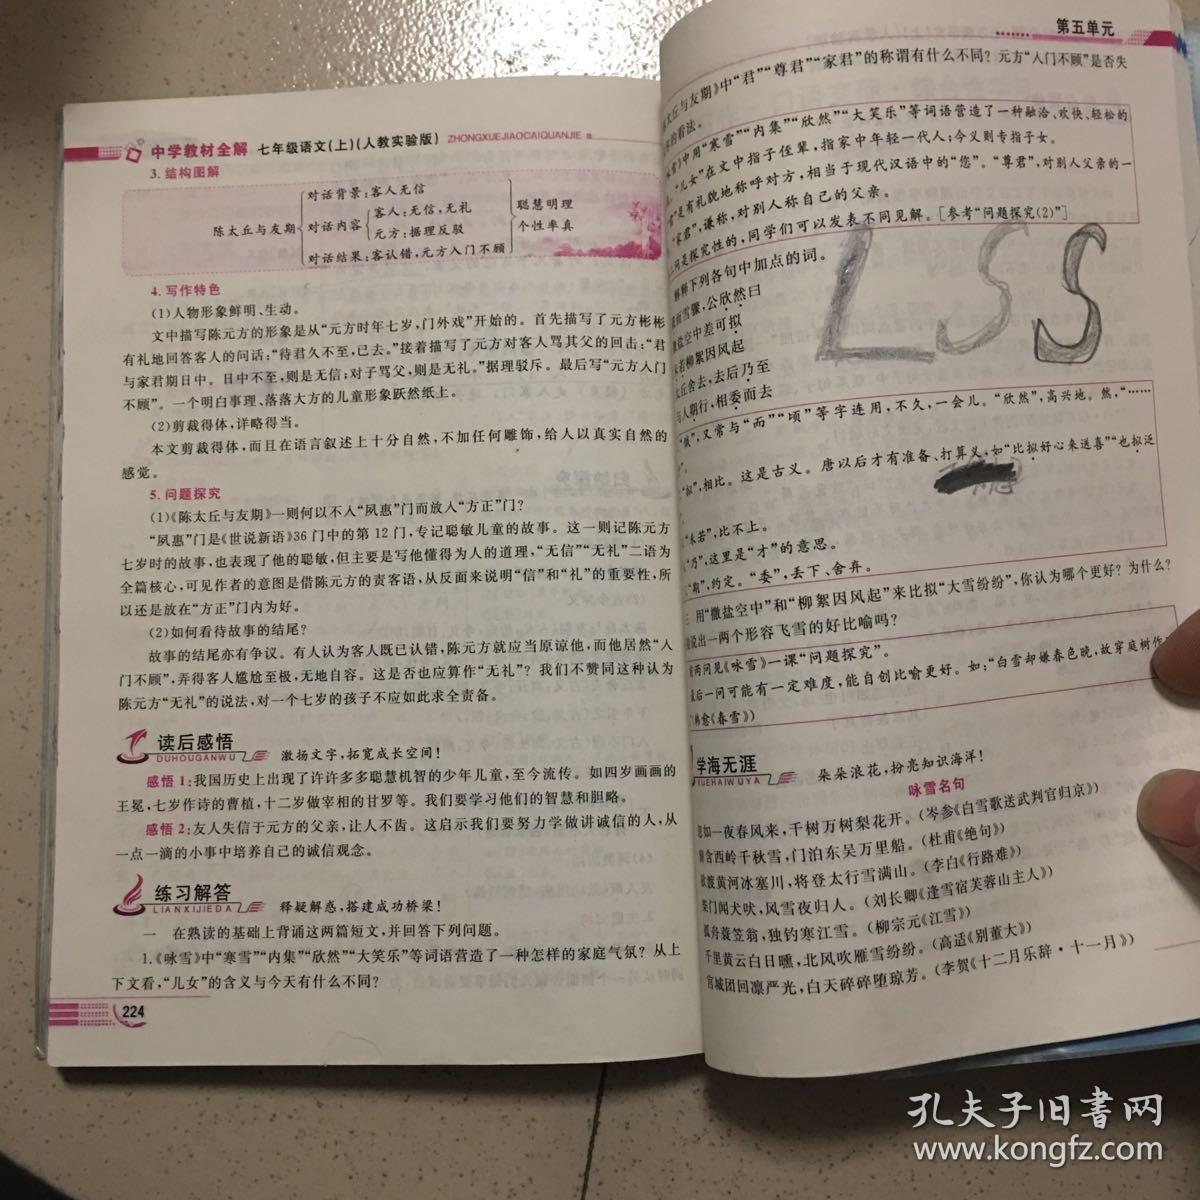 中学教材全解 七年级语文(上)(人教实验版) ZHONGXUEJIAOCAIQUANJIE
3. 结构图解
陈太丘与友期
对话背景:客人无信
对话内容
客人:无信,无礼
元方:据理反驳
对话结果:客认错,元方入门不顾
聪慧明理
个性率真
4. 写作特色
(1)人物形象鲜明、生动。
文中描写陈元方的形象是从“元方时年七岁,门外戏”开始的。首先描写了元方彬彬
有礼地回答客人的问话:“待君久不至,已去。”接着描写了元方对客人骂其父的回击:“君
与家君期日中。日中不至,则是无信;对子骂父,则是无礼。”据理驳斥。最后写“元方入门
不顾”。一个明白事理、落落大方的儿童形象跃然纸上。
(2)剪裁得体,详略得当。
本文剪裁得体,而且在语言叙述上十分自然,不加任何雕饰,给人以真实自然的
感觉。
5. 问题探究
(1)《陈太丘与友期》一则何以不入“夙惠”门而放入“方正”门?
“夙惠”门是《世说新语》36门中的第12门,专记聪敏儿童的故事。这一则记陈元方
七岁时的故事,也表现了他的聪敏,但主要是写他懂得为人的道理,“无信”“无礼”二语为
全篇核心,可见作者的意图是借陈元方的责客语,从反面来说明“信”和“礼”的重要性,所
以还是放在“方正”门内为好。
(2)如何看待故事的结尾?
故事的结尾亦有争议。有人认为客人既已认错,陈元方就应当原谅他,而他居然“入
门不顾”,弄得客人尴尬至极,无地自容。这是否也应算作“无礼”?我们不赞同这种认为
陈元方“无礼”的说法,对一个七岁的孩子不应如此求全责备。
读后感悟
DUHOUGANWU
激扬文字,拓宽成长空间!
感悟1:我国历史上出现了许许多多聪慧机智的少年儿童,至今流传。如四岁画画的
王冕,七岁作诗的曹植,十二岁做宰相的甘罗等。我们要学习他们的智慧和胆略。
感悟2:友人失信于元方的父亲,让人不齿。这启示我们要努力学做讲诚信的人,从
一点一滴的小事中培养自己的诚信观念。
练习解答
LIANXIJIEDA
释疑解惑,搭建成功桥梁!
一 在熟读的基础上背诵这两篇短文,并回答下列问题。
1.《咏雪》中“寒雪”“内集”“欣然”“大笑乐”等词语营造了一种怎样的家庭气氛?从上
下文看,“儿女”的含义与今天有什么不同?
224
第五单元
太丘与友期》中“君”“尊君”“家君”的称谓有什么不同?元方“入门不顾”是否失
的看法。
雪》中用“寒雪”“内集”“欣然”“大笑乐”等词语营造了一种融洽、欢快、轻松的
“儿女”在文中指子侄辈,指家中年轻一代人;今义则专指子女。
”是有礼貌地称呼对方,相当于现代汉语中的“您”。“尊君”,对别人父亲的一
“家君”,谦称,对别人称自己的父亲。
问是探究性的,同学们可以发表不同见解。[参考“问题探究(2)”]
解释下列各句中加点的词。
雪骤,公欣然曰
盐空中差可拟
若柳絮因风起
丘舍去,去后乃至
人期行,相委而去
LSS
,又常与“而”“顷”等字连用,不久,一会儿。“欣然”,高兴地。然,“……
“拟”,相比。这是古义。唐以后才有准备、打算义,如“比拟好心来送喜”“也拟泛
“未若”,比不上。
“乃”,这里是“才”的意思。
“期”,约定。“委”,丢下、舍弃。
三 用“撒盐空中”和“柳絮因风起”来比拟“大雪纷纷”,你认为哪个更好?为什么?
说出一两个形容飞雪的好比喻吗?
两问见《咏雪》一课“问题探究”。
最后一问可能有一定难度,能自创比喻更好。如:“白雪却嫌春色晚,故穿庭树作
韩愈《春雪》)
学海无涯
XUEHAIWUYA
朵朵浪花,扮亮知识海洋!
咏雪名句
忽如一夜春风来,千树万树梨花开。(岑参《白雪歌送武判官归京》)
含西岭千秋雪,门泊东吴万里船。(杜甫《绝句》)
欲渡黄河冰塞川,将登太行雪满山。(李白《行路难》)
柴门闻犬吠,风雪夜归人。(刘长卿《逢雪宿芙蓉山主人》)
孤舟蓑笠翁,独钓寒江雪。(柳宗元《江雪》)
千里黄云白日曛,北风吹雁雪纷纷。(高适《别董大》)
宫城团回凛严光,白天碎碎堕琼芳。(李贺《十二月乐辞·十一月》)
孔夫子旧书网
www.kongfz.com